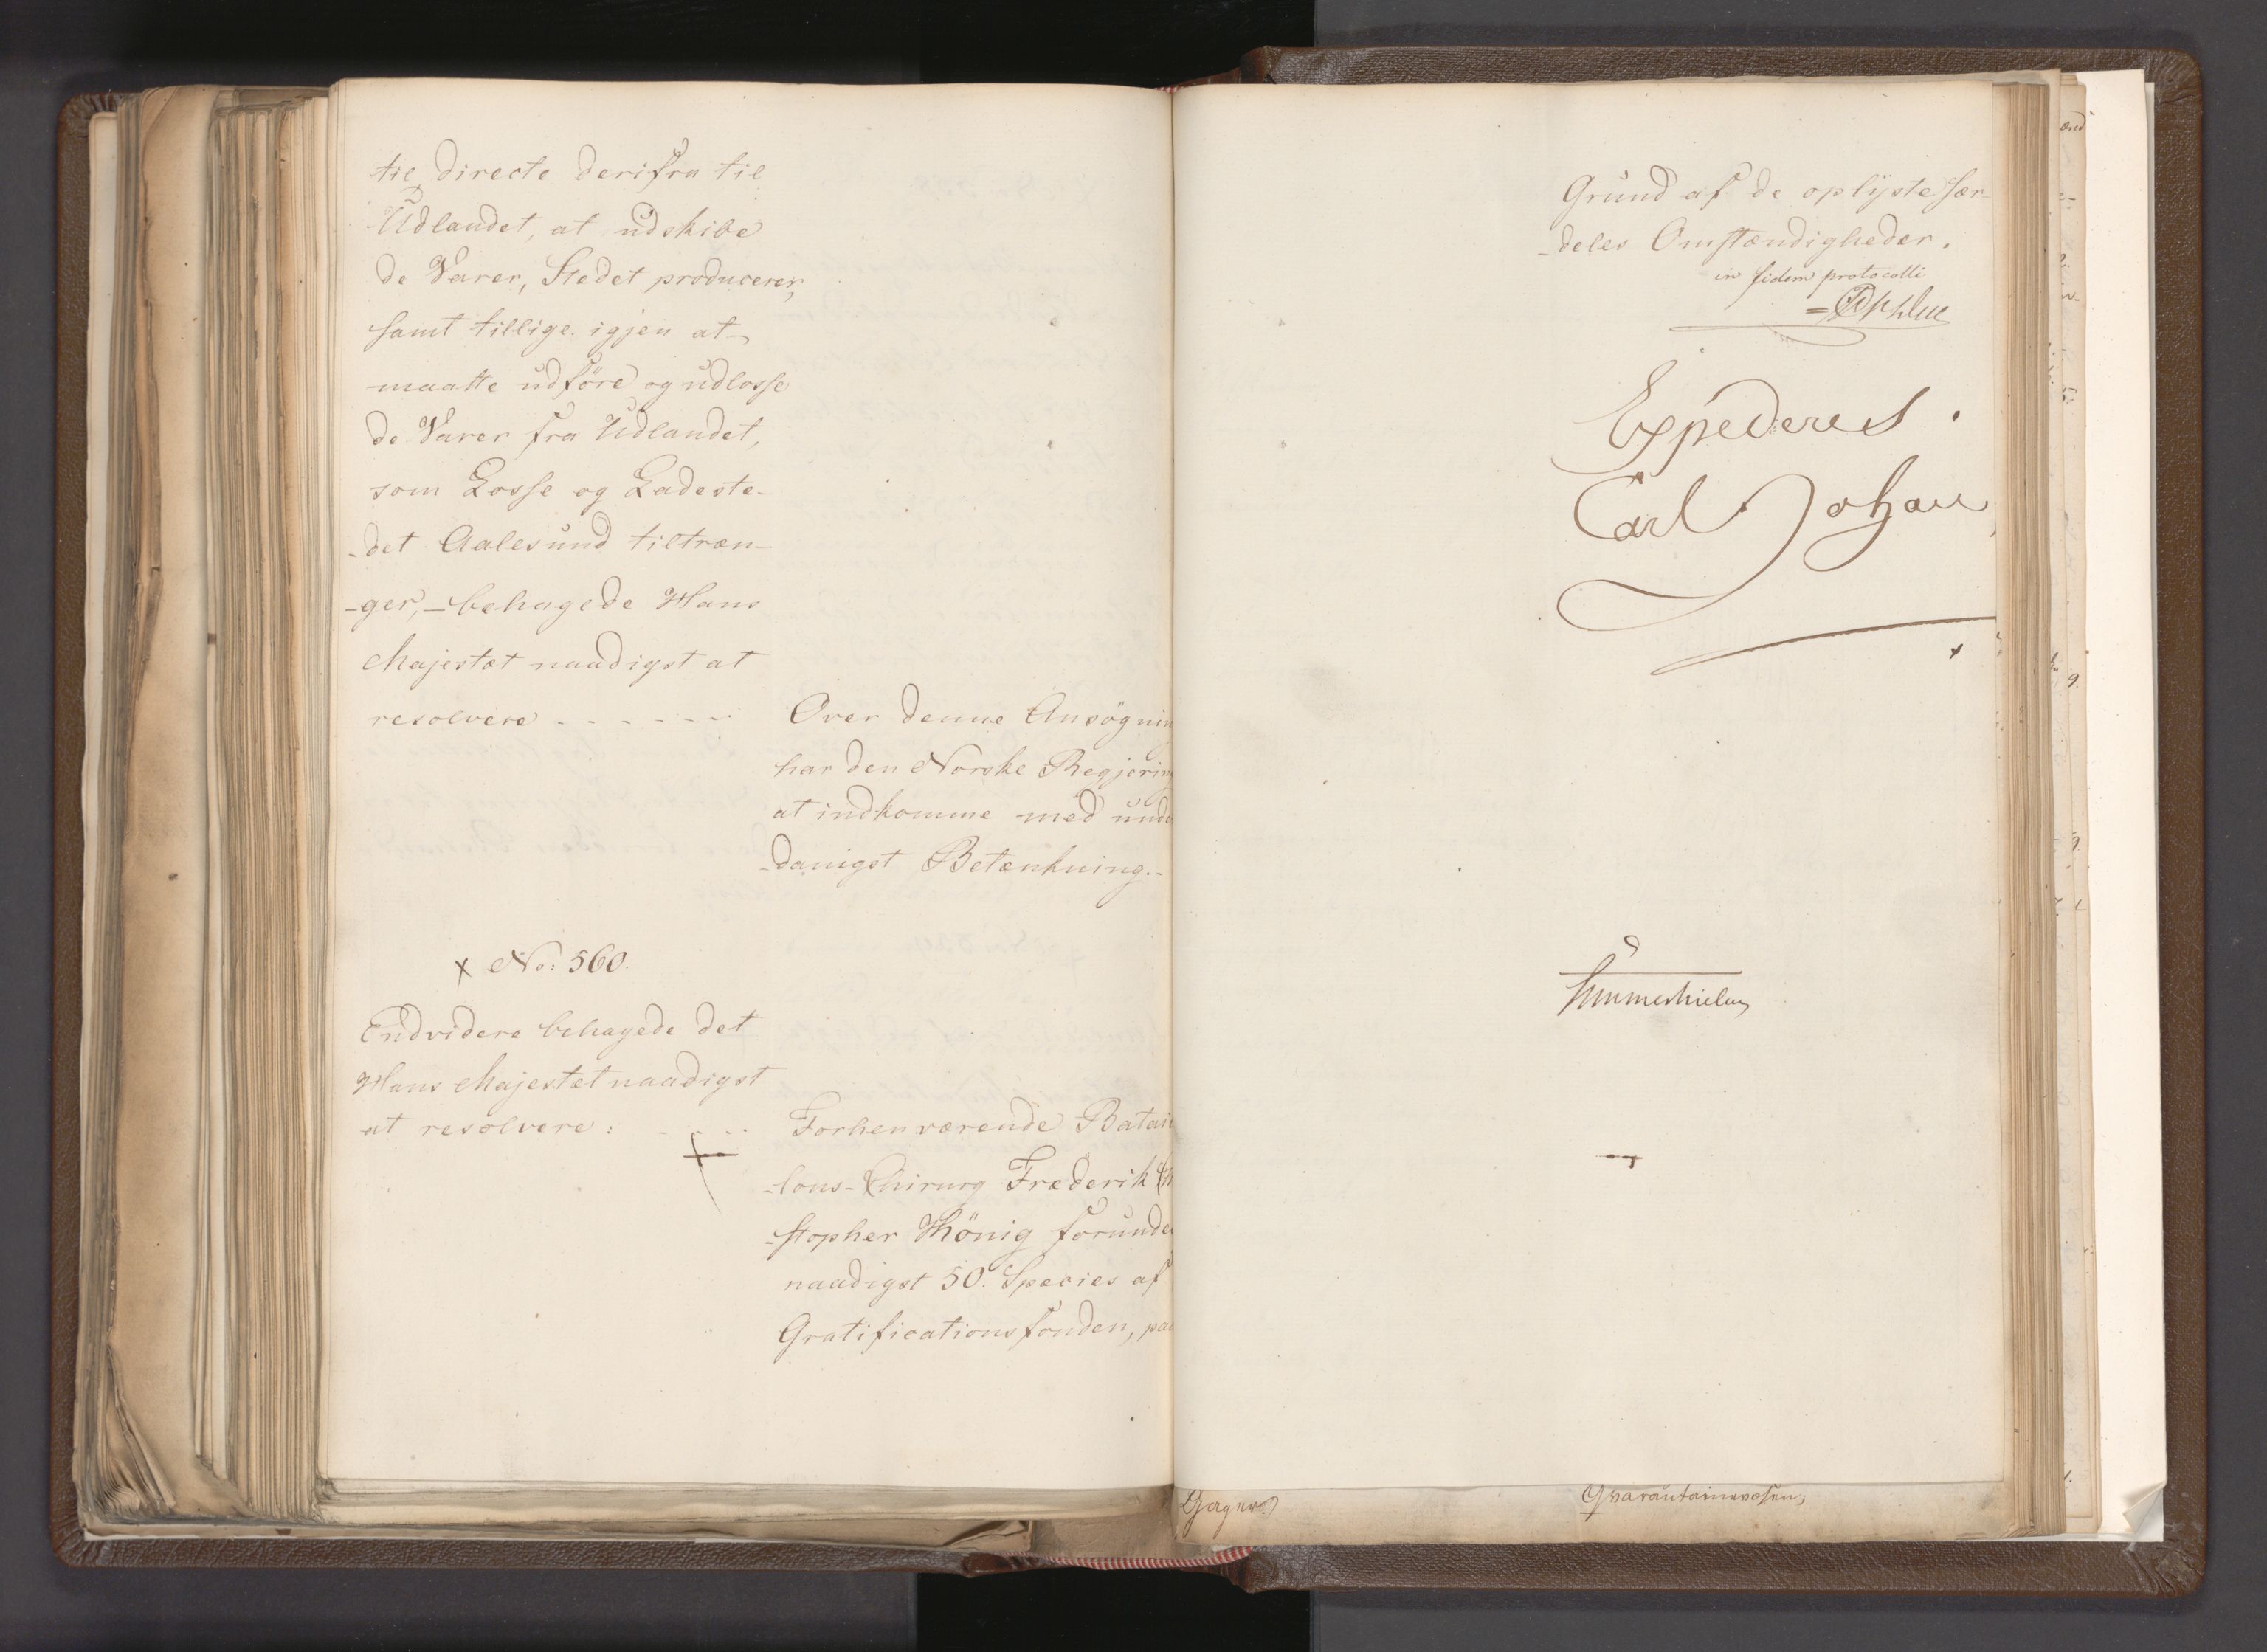 til directe derifra til
Udlandet, at udskibe
de Varer, Stedet producerer,
samt tillige igjen at
maatte udföre og udlosse
de Varer fra Udlandet,
som Losse og Ladeste-
-det Aalesund tiltræn-
-ger, - behagede Hans
Majestæt naadigst at
resolvere - - - - - -
Over denne Ansögnin
har den Norske Regjering
at indkomme med unde
-danigst Betænkning.-
x No: 560.
Endvidere behagede det
Hans Majestæt naadigst
at resolvere: - - - -
Forhenværende Batail
-lons-Chirurg Frederik Chri
-stopher König forundes
naadigst 50. Species af
Gratificationsfonden, paa
Grund af de oplyste sær-
-deles Omstændigheder.
in fidem protocolli
Expederes.
Carl Johan
Gager
Qvarantainevæsen,